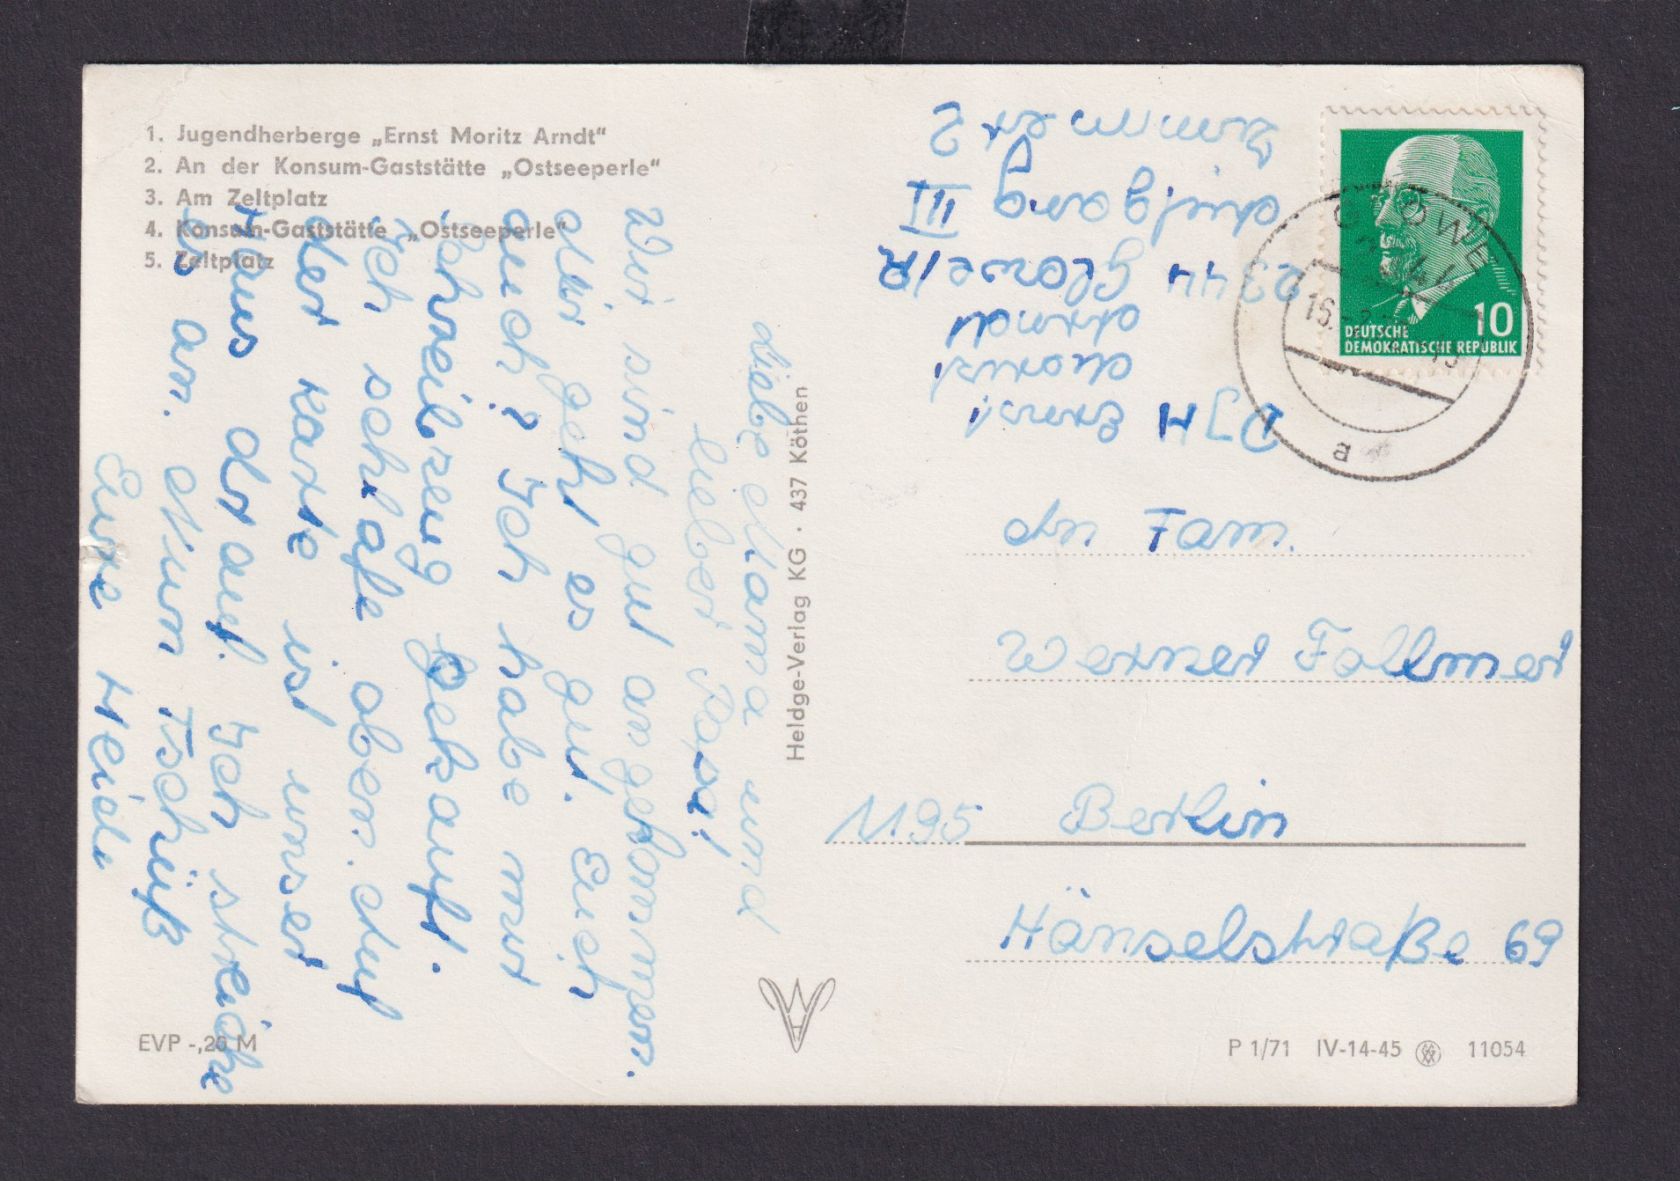 1. Jugendherberge „Ernst Moritz Arndt“
2. An der Konsum-Gaststätte „Ostseeperle“
3. Am Zeltplatz
4. Konsum-Gaststätte „Ostseeperle“
5. Zeltplatz
Liebe Mama und
lieber Papa!
Wir sind gut angekommen.
Mir geht es gut. Euch
auch? Ich habe mir
Schreibzeug gekauft.
Ich schlafe oben. Auf
der Karte ist unser
Haus drauf. Ich streiche
es an. Nun Tschüß
Eure Heidi
Heldge-Verlag KG · 437 Köthen
EVP -,20 M
DJH Ernst
Moritz
Arndt
2344 Glowe/R
Aufgang III
Zimmer 2
GLOWE
a
10
DEUTSCHE
DEMOKRATISCHE REPUBLIK
An Fam.
Werner Follmer
1195 Berlin
Hänselstraße 69
P 1/71 IV-14-45 11054